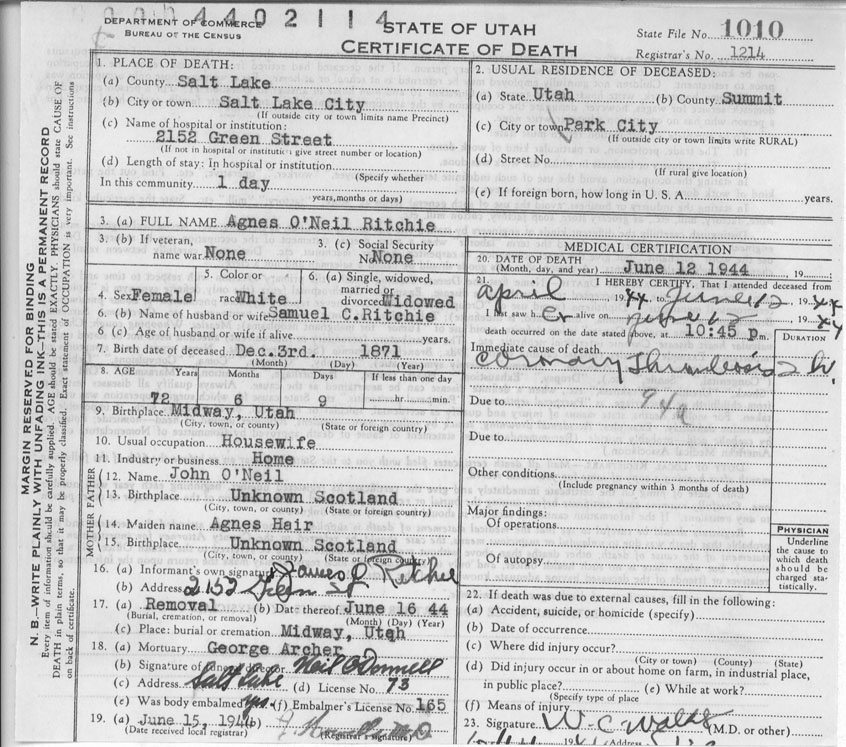 4402114
DEPARTMENT OF COMMERCE
BUREAU OF THE CENSUS
STATE OF UTAH
CERTIFICATE OF DEATH
State File No. 1010
Registrar's No. 1214
MARGIN RESERVED FOR BINDING
N. B.—WRITE PLAINLY WITH UNFADING INK—THIS IS A PERMANENT RECORD
Every item of information should be carefully supplied. AGE should be stated EXACTLY. PHYSICIANS should state CAUSE OF
DEATH in plain terms, so that it may be properly classified. Exact statement of OCCUPATION is very important. See instructions
on back of certificate.
1. PLACE OF DEATH:
(a) County Salt Lake
(b) City or town Salt Lake City
(If outside city or town limits name Precinct)
(c) Name of hospital or institution:
2152 Green Street
(If not in hospital or institution give street number or location)
(d) Length of stay: In hospital or institution
(Specify whether
In this community 1 day
years, months or days)
2. USUAL RESIDENCE OF DECEASED:
(a) State Utah (b) County Summit
(c) City or town Park City
(If outside city or town limits write RURAL)
(d) Street No.
(If rural give location)
(e) If foreign born, how long in U. S. A. years.
3. (a) FULL NAME Agnes O'Neil Ritchie
3. (b) If veteran,
name war None
3. (c) Social Security
No. None
4. Sex Female
5. Color or
race White
6. (a) Single, widowed,
married or
divorced Widowed
6. (b) Name of husband or wife Samuel C. Ritchie
6. (c) Age of husband or wife if alive years.
7. Birth date of deceased Dec. 3rd. 1871
(Month) (Day) (Year)
8. AGE Years Months Days If less than one day
72 6 9 hr. min.
9. Birthplace Midway, Utah
(City, town, or county) (State or foreign country)
10. Usual occupation Housewife
11. Industry or business Home
FATHER
12. Name John O'Neil
13. Birthplace Unknown Scotland
(City, town, or county) (State or foreign country)
MOTHER
14. Maiden name Agnes Hair
15. Birthplace Unknown Scotland
(City, town, or county) (State or foreign country)
16. (a) Informant's own signature James Ritchie
(b) Address 2152 Green St
17. (a) Removal (b) Date thereof June 16 44
(Burial, cremation, or removal) (Month) (Day) (Year)
(c) Place: burial or cremation Midway, Utah
18. (a) Mortuary George Archer
(b) Signature of funeral director Neil O'Donnell
(c) Address Salt Lake (d) License No. 73
(e) Was body embalmed yes (f) Embalmer's License No. 165
19. (a) June 15, 1944 (b)
(Date received local registrar) (Registrar's signature)
MEDICAL CERTIFICATION
20. DATE OF DEATH
(Month, day, and year) June 12 1944 , 19
21. I HEREBY CERTIFY, That I attended deceased from
April 1944 to June 12 1944
I last saw her alive on June 12 1944
death occurred on the date stated above, at 10:45 p.m.
DURATION
Immediate cause of death
Coronary Thrombosis
Due to 94a
Due to
Other conditions
(Include pregnancy within 3 months of death)
Major findings:
Of operations
Of autopsy
PHYSICIAN
Underline
the cause to
which death
should be
charged sta-
tistically.
22. If death was due to external causes, fill in the following:
(a) Accident, suicide, or homicide (specify)
(b) Date of occurrence
(c) Where did injury occur?
(City or town) (County) (State)
(d) Did injury occur in or about home on farm, in industrial place,
in public place? (e) While at work?
(Specify type of place
(f) Means of injury
23. Signature W. C. (M.D. or other)